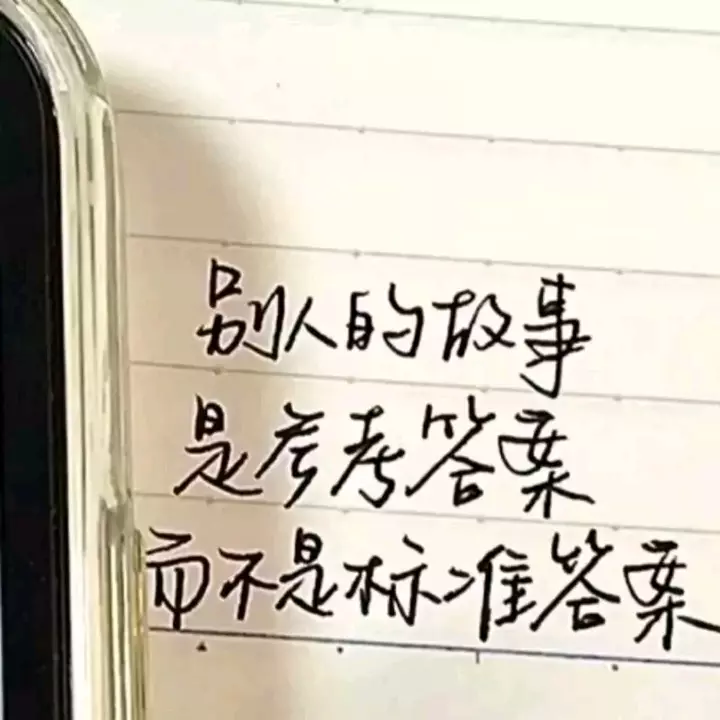 别人的故事
是参考答案
而不是标准答案